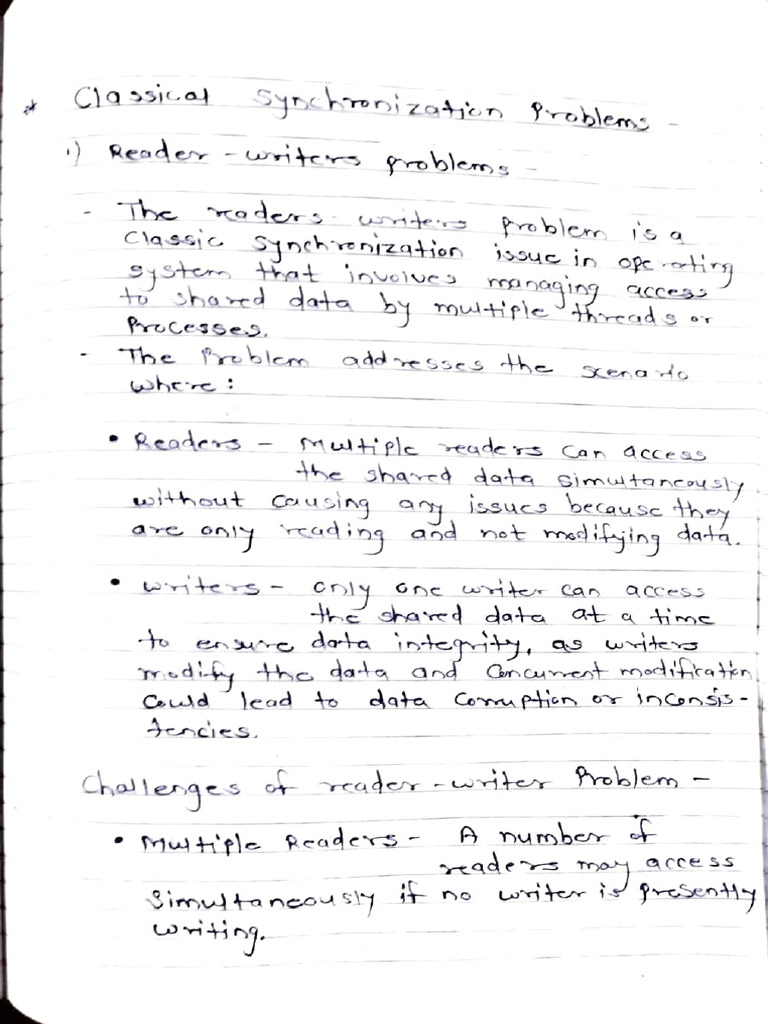 * Classical Synchronization Problems -
1) Reader-writers problems -
- The readers-writers problem is a
classic synchronization issue in operating
system that involves managing access
to shared data by multiple threads or
Processes.
- The Problem addresses the scenario
where:
• Readers - Multiple readers can access
the shared data simultaneously
without causing any issues because they
are only reading and not modifying data.
• Writers - only one writer can access
the shared data at a time
to ensure data integrity, as writers
modify the data and concurrent modification
could lead to data corruption or inconsis-
tencies.
Challenges of reader-writer Problem -
• Multiple Readers - A number of
readers may access
simultaneously if no writer is presently
writing.